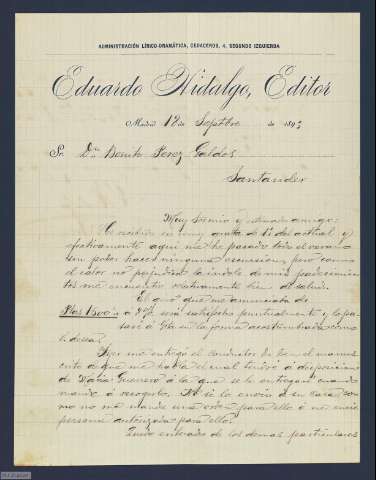 ADMINISTRACIÓN LÍRICO-DRAMÁTICA, CEDACEROS, 4, SEGUNDO IZQUIERDA
Eduardo Hidalgo, Editor
Madrid 12 de Septbre de 189
Sr. Dn Benito Perez Galdos
Santander
Muy Sr mio y amigo:
He recibido su muy grata de 1º del actual y
efectivamente aqui me he pasado todo el verano
sin poder hacer ninguna escursion, pero como
el calor no perjudica la indole de mis padecimien
tos me encuentro relativamente bien de salud.
El giro que me anunciaba de
Ptas 1500 á será satisfecho puntualmente y lo pa
saré á en la forma acostumbrada como
desea.
Ayer me entregó el conductor de tren el manus
crito á que me habla el cual tendré á disposicion
de Maria Guerrero á la que se lo entregaré cuando
mande á recogerlo, se lo envio á su casa co
mo no me mande una orden para ello ó me envie
persona autorizada para ello.
Quedo enterado de los demas particulares